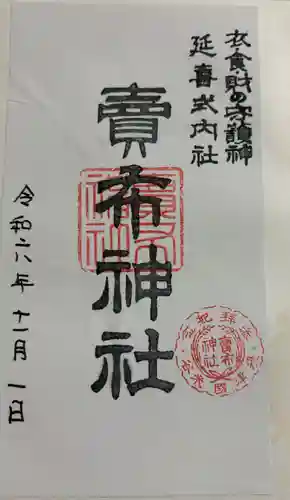 衣食財の守護神
延喜式内社
賣布神社
令和六年十一月一日
賣布神社